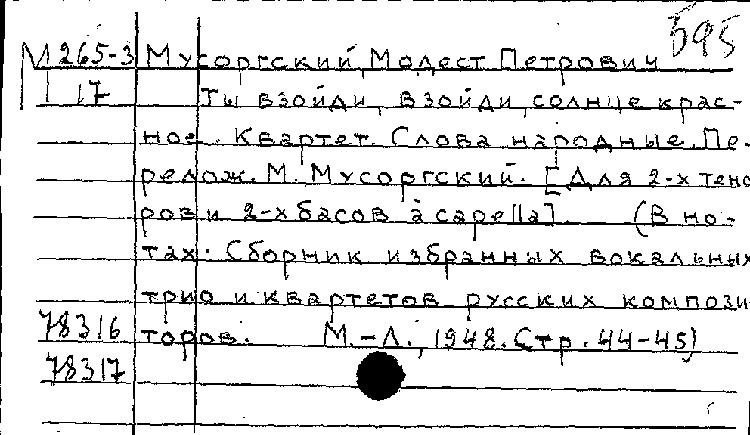 595
М 265-3 Мусоргский, Модест Петрович
17 Ты взойди, взойди, солнце крас-
ное. Квартет. Слова народные. Пе-
релож. М. Мусоргский. [Для 2-х тено
ров и 2-х басов a capella]. (В но-
тах: Сборник избранных вокальных
трио и квартетов русских компози
78316 торов. М.-Л., 1948. Стр. 44-45)
78317